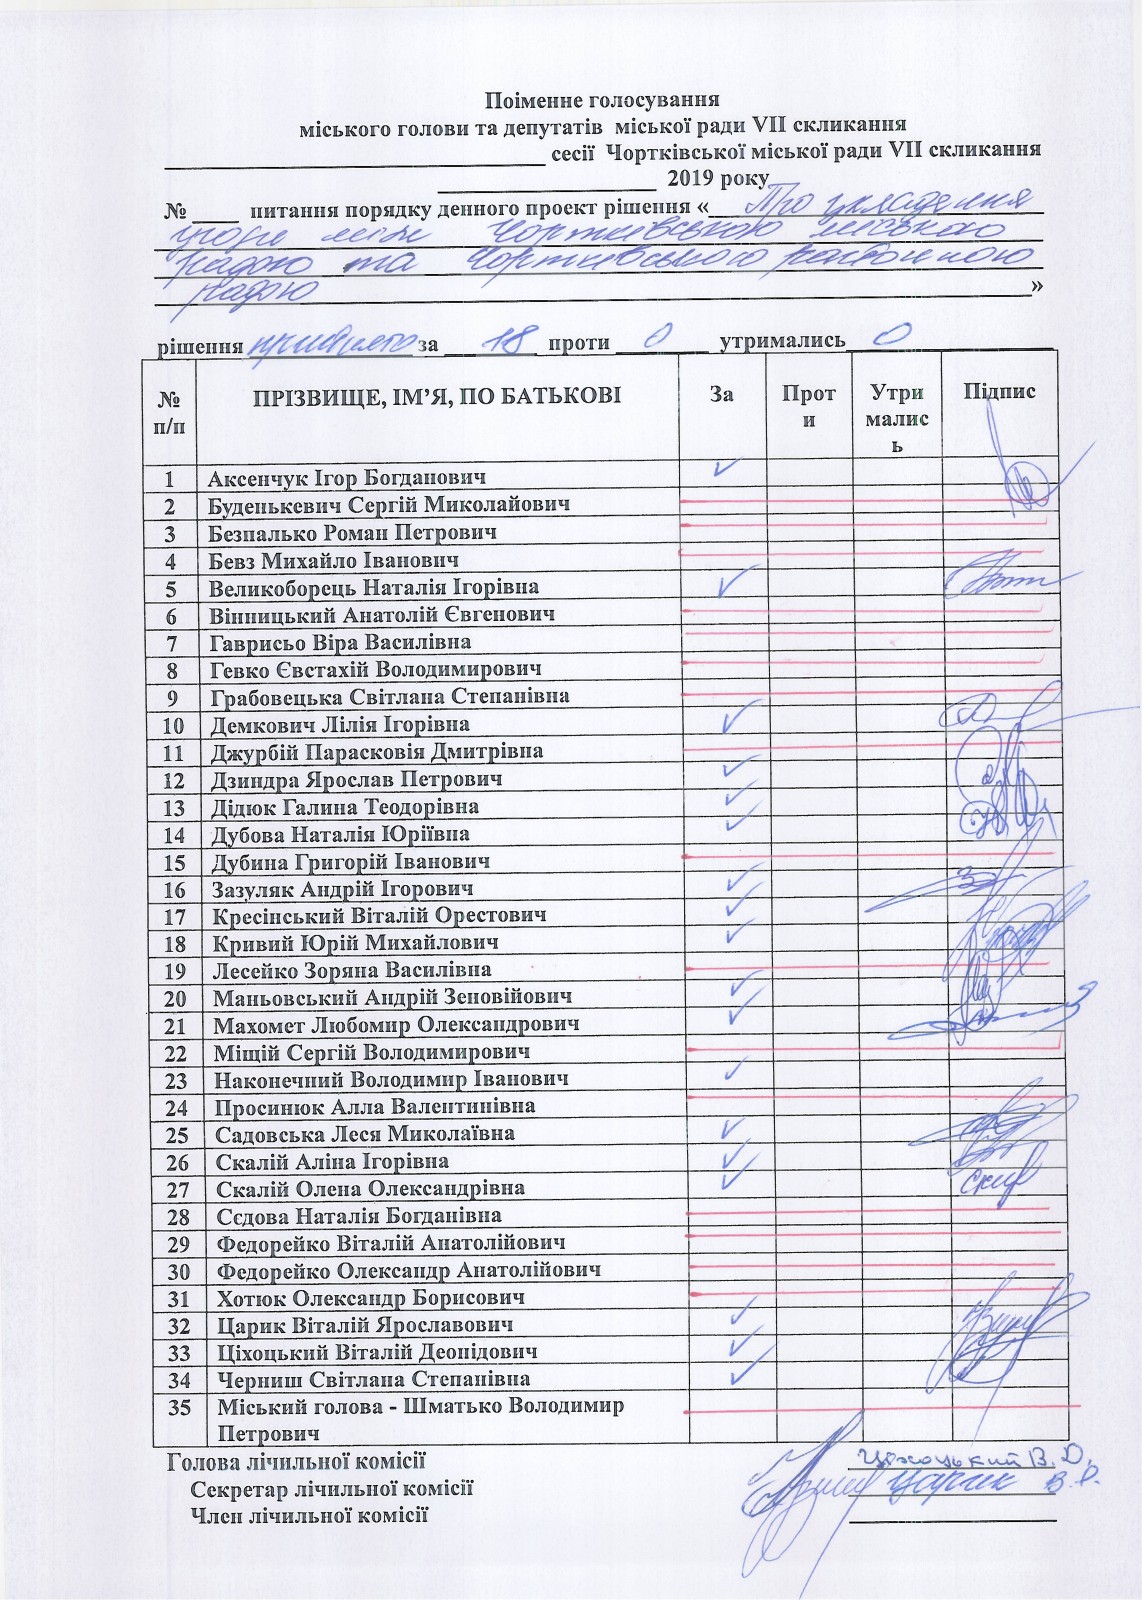 Поіменне голосування
міського голови та депутатів міської ради VII скликання
сесії Чортківської міської ради VII скликання
2019 року
№ ____ питання порядку денного проект рішення « Про укладення
угоди між Чортківською міською
радою та Чортківською районною
радою »
рішення прийнято за 18 проти 0 утримались 0
№ п/п ПРІЗВИЩЕ, ІМ’Я, ПО БАТЬКОВІ За Проти Утрималис ь Підпис
1 Аксенчук Ігор Богданович ✓
2 Буденькевич Сергій Миколайович
3 Безпалько Роман Петрович
4 Бевз Михайло Іванович
5 Великоборець Наталія Ігорівна ✓
6 Вінницький Анатолій Євгенович
7 Гаврисьо Віра Василівна
8 Гевко Євстахій Володимирович
9 Грабовецька Світлана Степанівна
10 Демкович Лілія Ігорівна ✓
11 Джурбій Парасковія Дмитрівна
12 Дзиндра Ярослав Петрович ✓
13 Дідюк Галина Теодорівна ✓
14 Дубова Наталія Юріївна ✓
15 Дубина Григорій Іванович
16 Зазуляк Андрій Ігорович ✓
17 Кресінський Віталій Орестович ✓
18 Кривий Юрій Михайлович ✓
19 Лесейко Зоряна Василівна
20 Маньовський Андрій Зеновійович ✓
21 Махомет Любомир Олександрович ✓
22 Міщій Сергій Володимирович
23 Наконечний Володимир Іванович ✓
24 Просинюк Алла Валентинівна
25 Садовська Леся Миколаївна ✓
26 Скалій Аліна Ігорівна ✓
27 Скалій Олена Олександрівна ✓
28 Сєдова Наталія Богданівна
29 Федорейко Віталій Анатолійович
30 Федорейко Олександр Анатолійович
31 Хотюк Олександр Борисович
32 Царик Віталій Ярославович ✓
33 Ціхоцький Віталій Деонідович ✓
34 Черниш Світлана Степанівна ✓
35 Міський голова - Шматько Володимир
Петрович
Голова лічильної комісії Ціхоцький В.Д.
Секретар лічильної комісії Царик В.
Член лічильної комісії